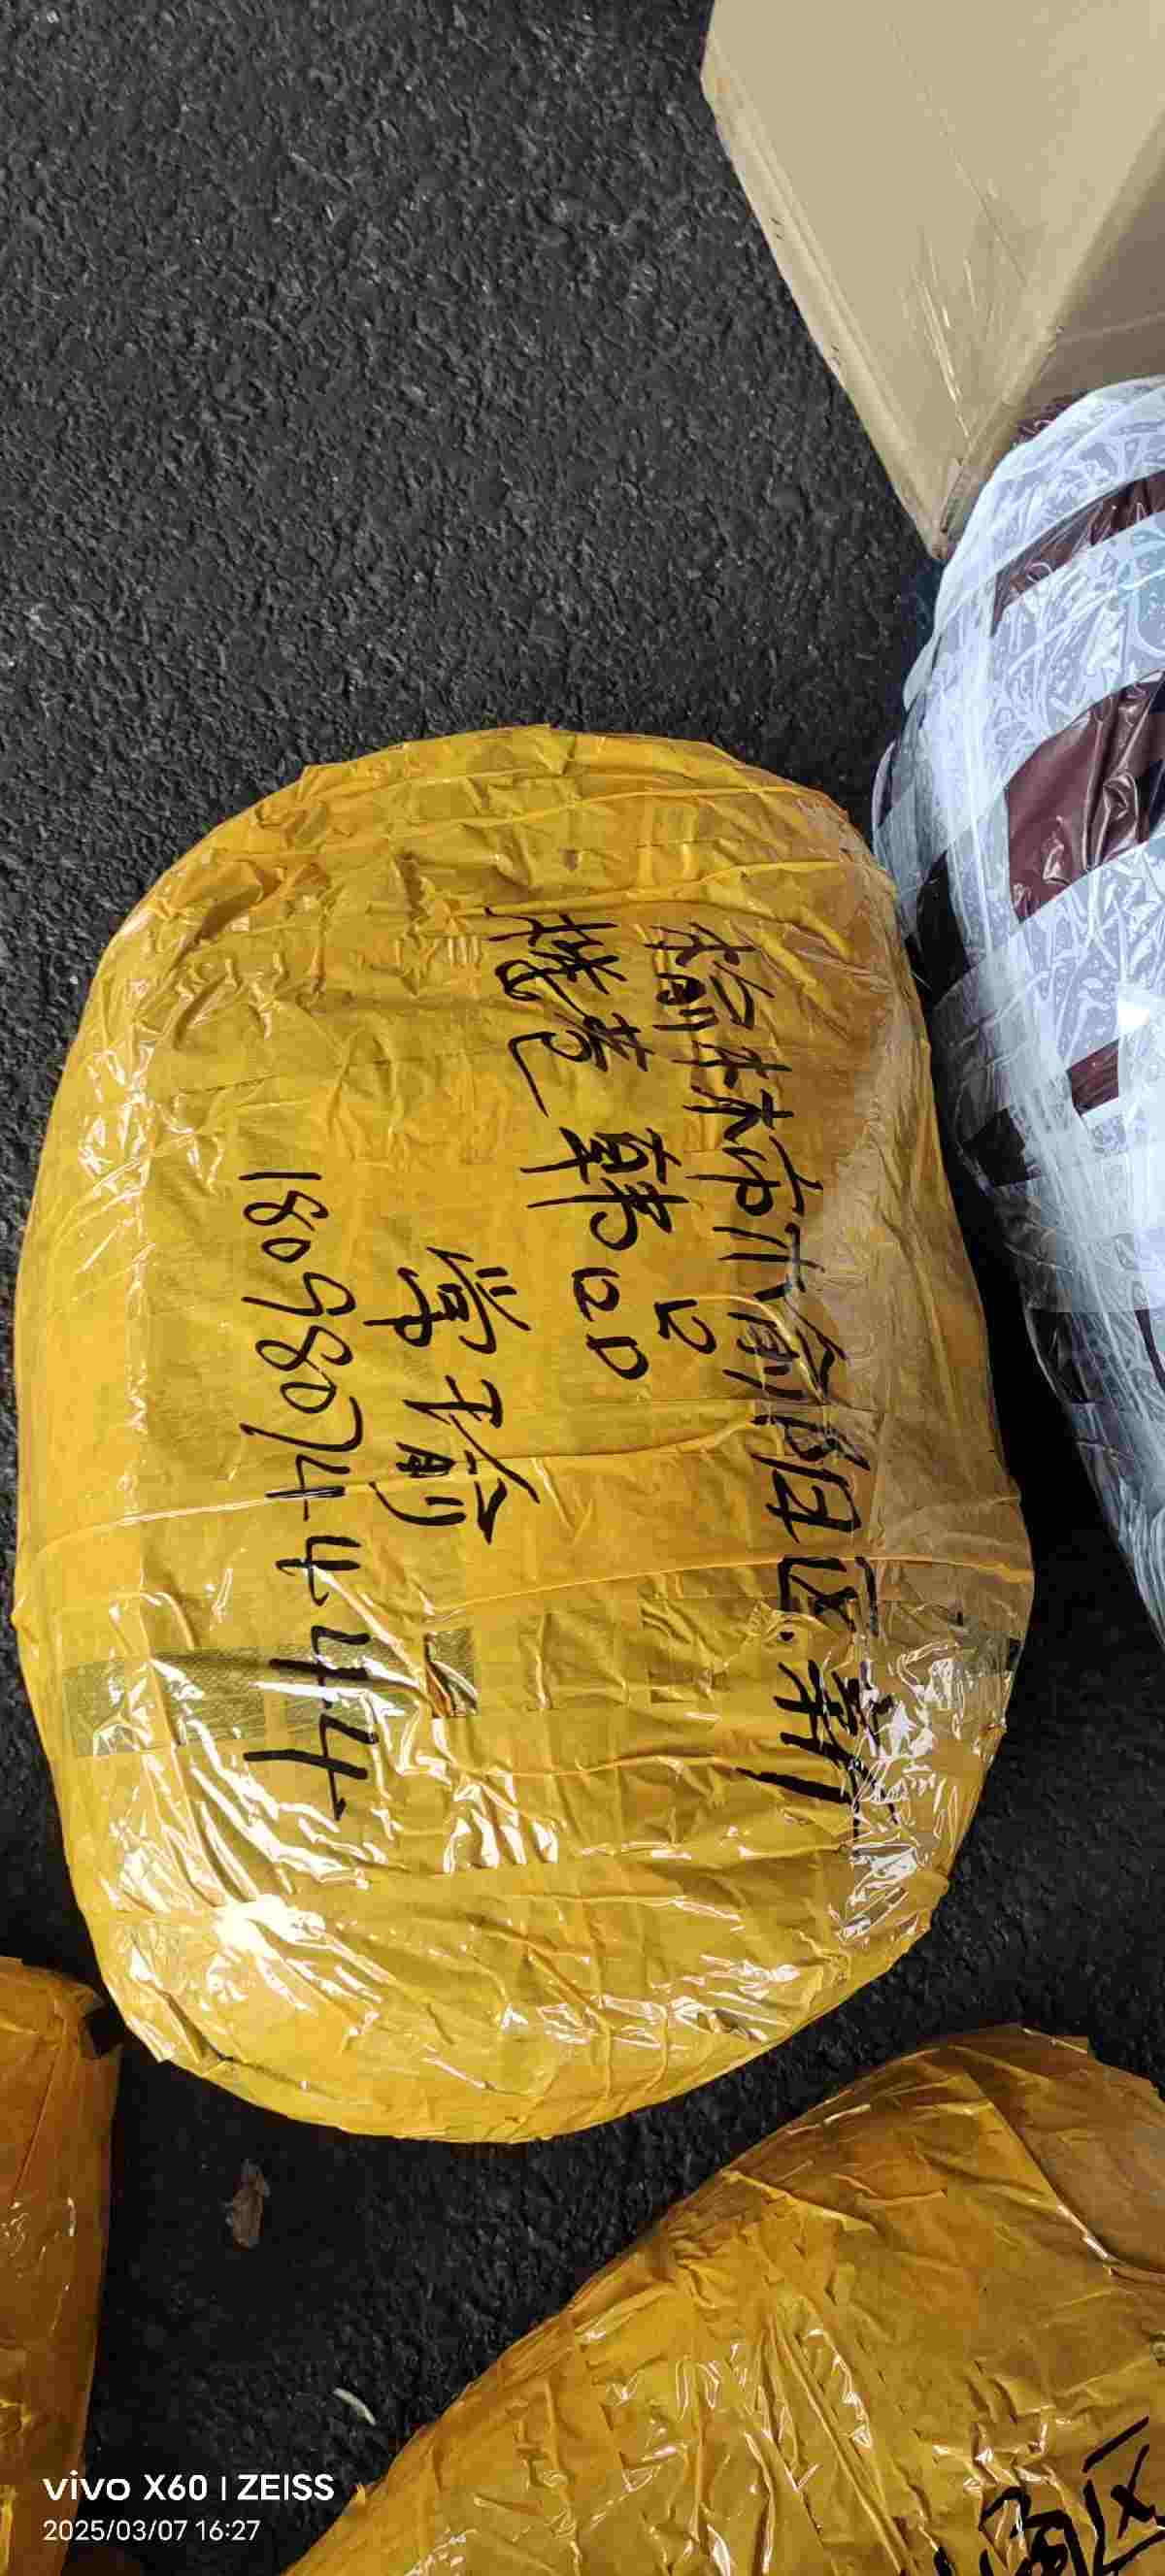 榆林市榆阳区.新
楼巷 韩品
常瑜
18058074444
区
vivo X60 | ZEISS
2025/03/07 16:27